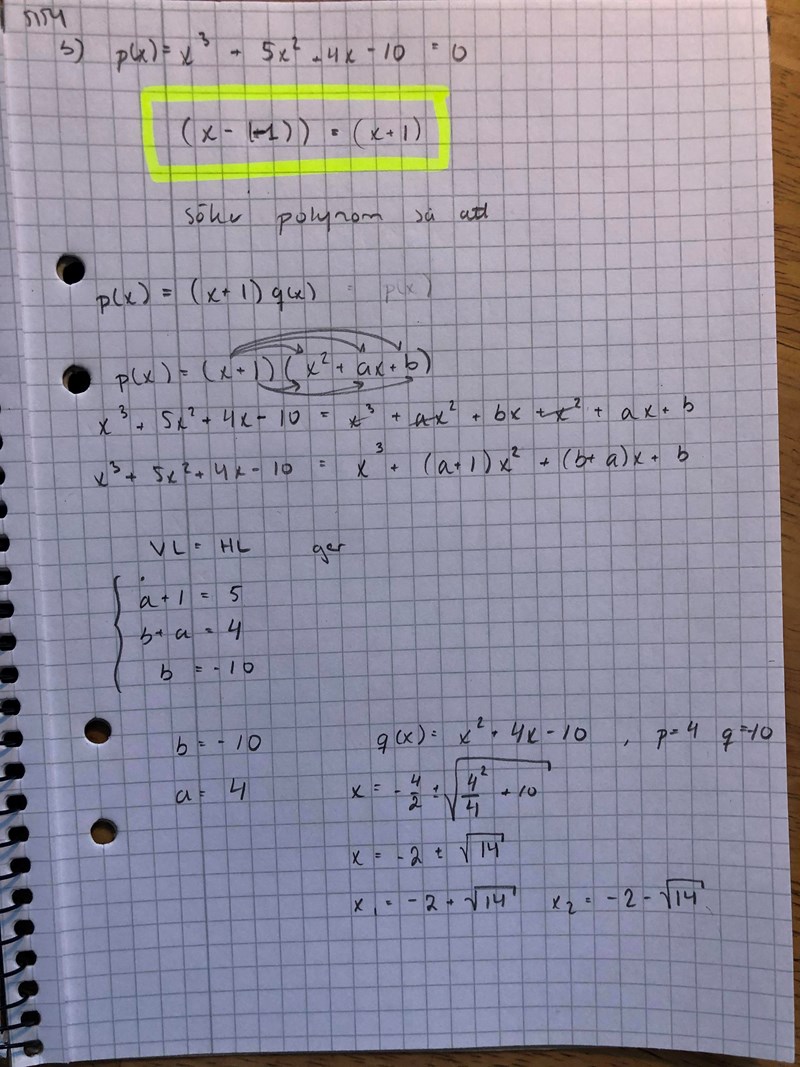 1154
b) p(x) = x³ + 5x² + 4x - 10 = 0
(x - (-1)) = (x+1)
söker polynom så att
p(x) = (x+1) q(x) = p(x)
p(x) = (x+1)(x² + ax + b)
x³ + 5x² + 4x - 10 = x³ + ax² + bx + x² + ax + b
x³ + 5x² + 4x - 10 = x³ + (a+1)x² + (b+a)x + b
VL = HL ger
a+1 = 5
b+a = 4
b = -10
b = -10
a = 4
q(x) = x² + 4x - 10 , p=4 q=-10
x = -4/2 ± √(4²/4 + 10)
x = -2 ± √14
x₁ = -2 + √14 x₂ = -2 - √14